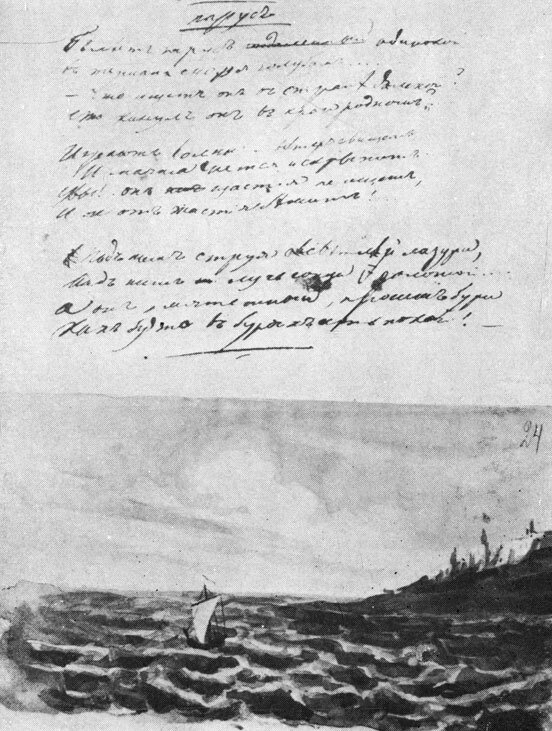 парусъ
Бѣлѣетъ парусъ одинокой
въ туманѣ моря голубомъ...
— Что ищетъ онъ въ странѣ далекой?
Что кинулъ онъ въ краю родномъ?
Играютъ волны вѣтеръ свищетъ
И мачта гнется и скрыпитъ
Увы! онъ щастія не ищетъ,
И не отъ щастія бѣжитъ!
Подъ нимъ струя свѣтлѣй лазури,
Надъ нимъ лучъ солнца золотой...
А онъ, мятежный, проситъ бури
Какъ будто въ буряхъ есть покой! —
24